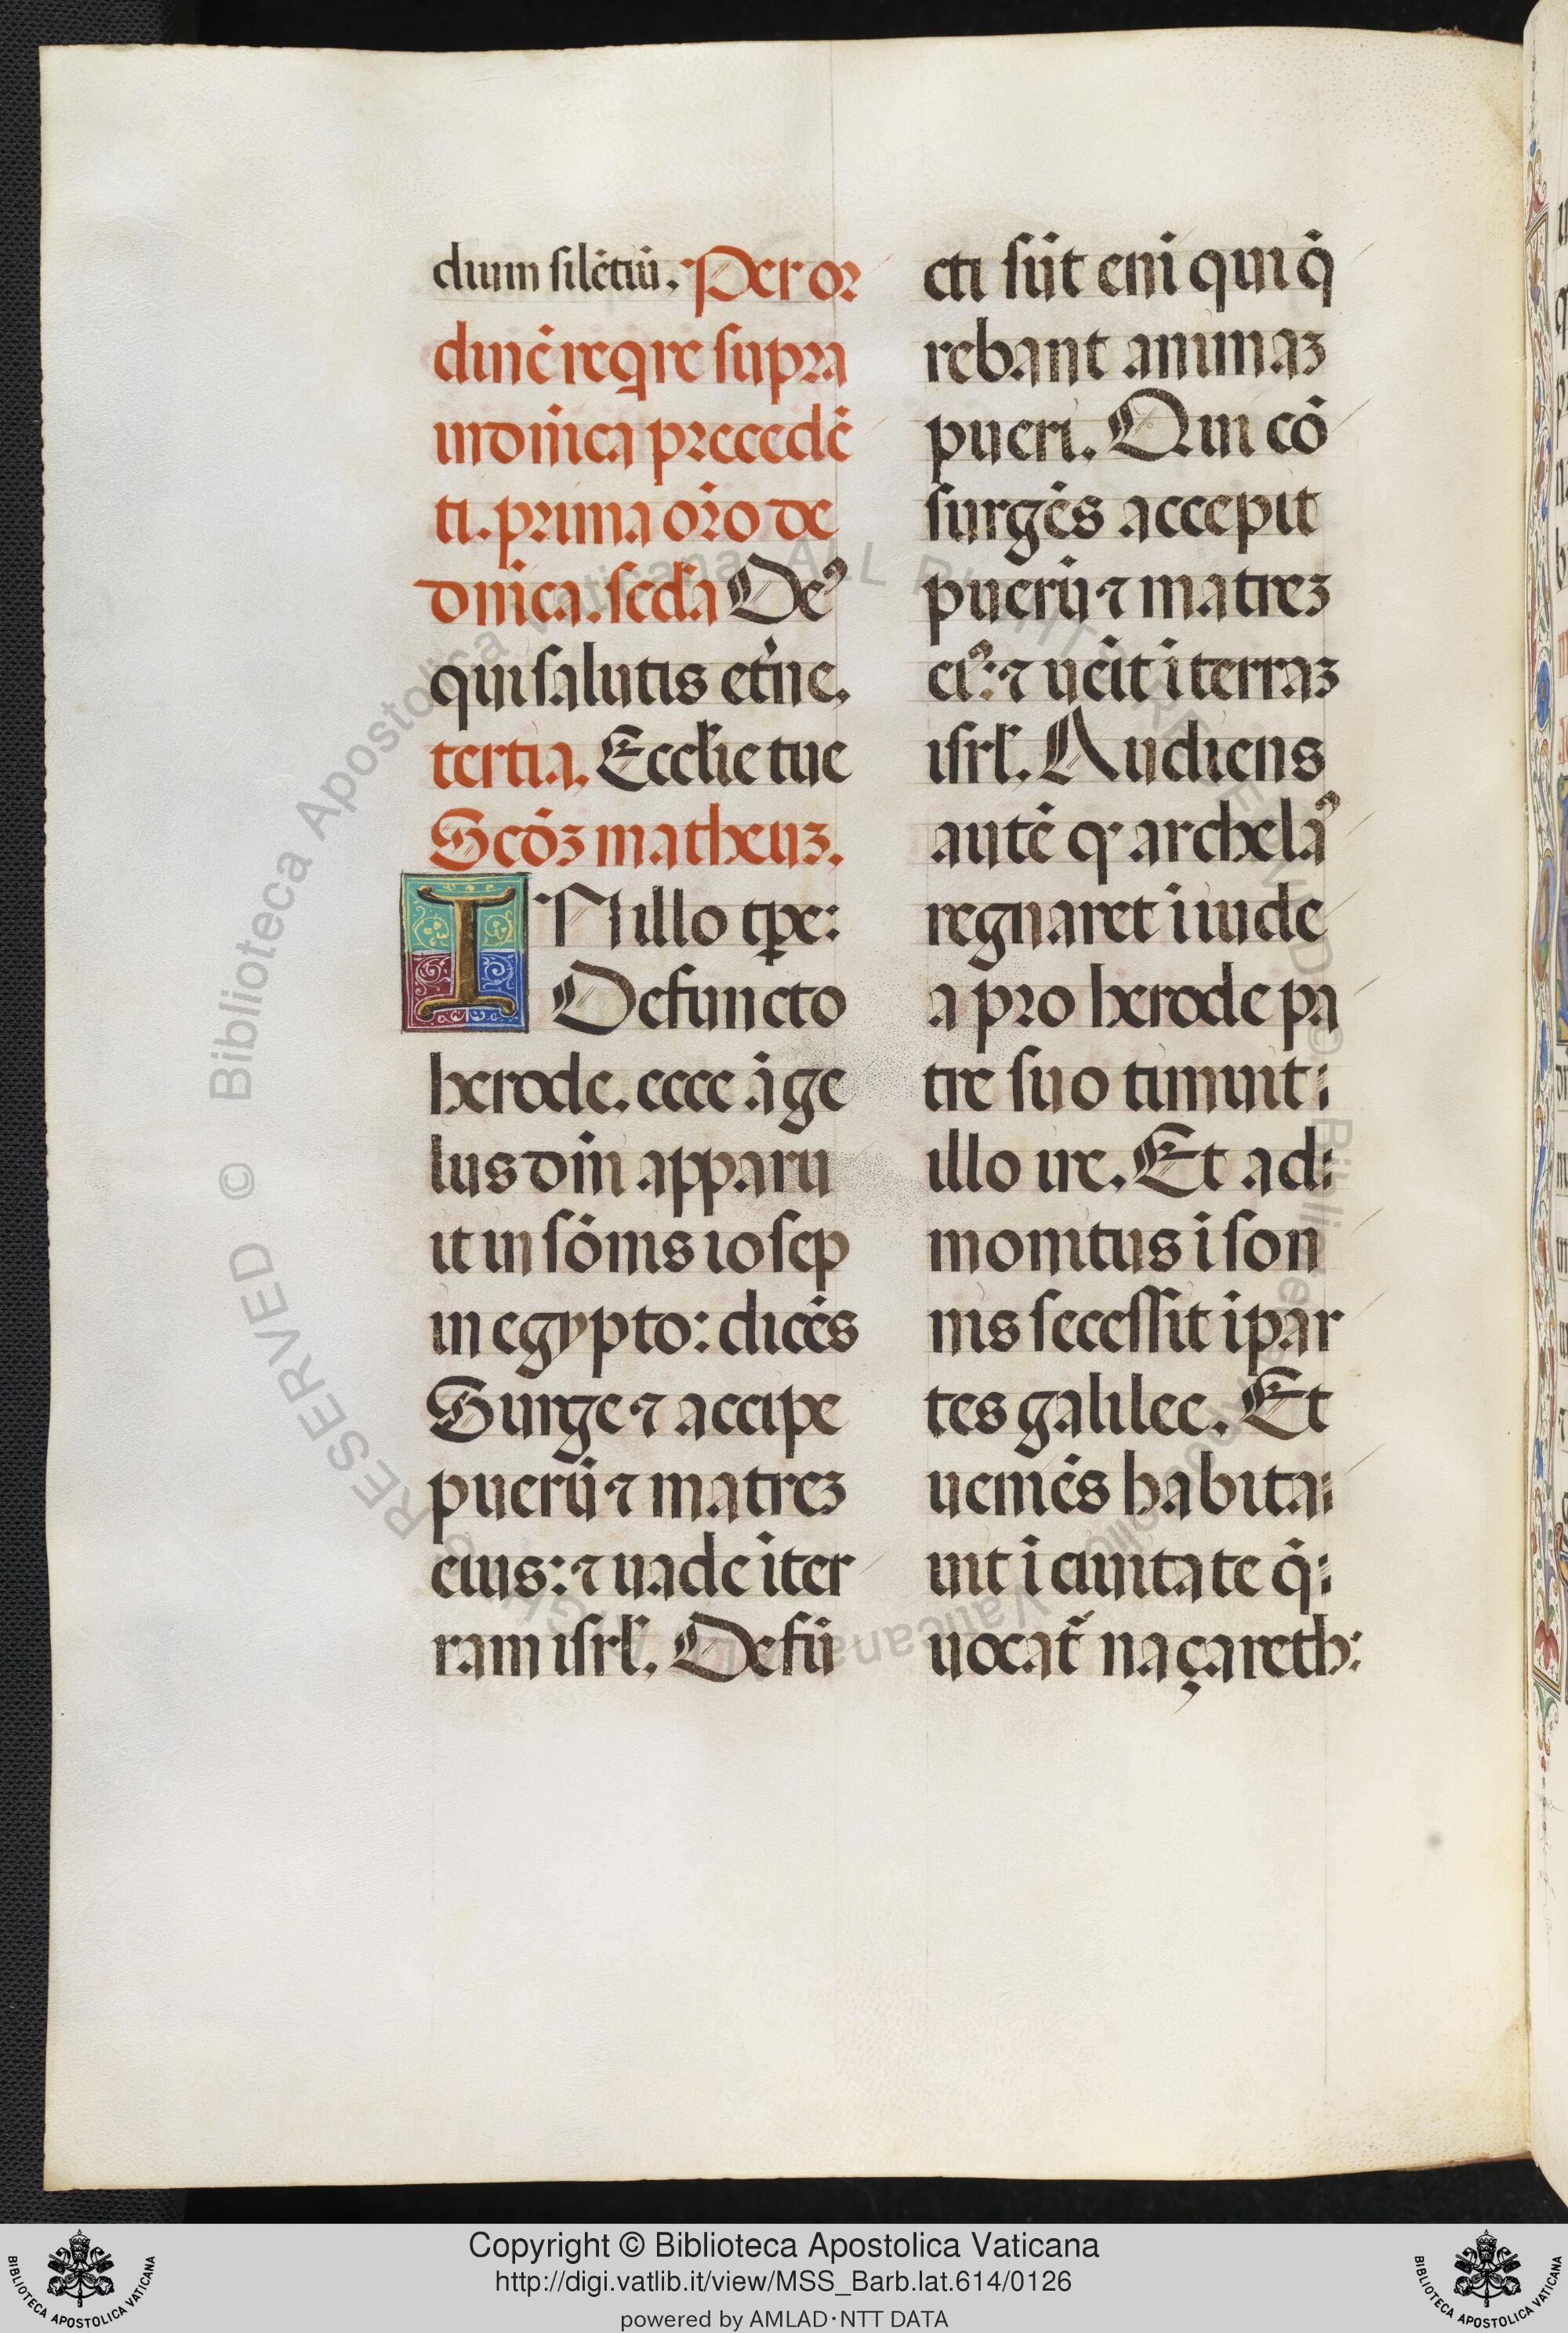 dium silētiū. Per or
dinē reqͥre supra
in dn̄ica precedē
ti. prima or̄o de
dn̄ica. scd̄a Deꝰ
qui salutis et̓ne.
tertia. Eccl̄ie tue
Scd̄ꝫ matheuꝫ.
IN illo tp̄e:
Defuncto
herode. ecce āge
lus dn̄i apparu
it in sōnis iosep
in egypto: dicēs
Surge ⁊ accipe
puerū ⁊ matreꝫ
eius: ⁊ uade ī ter
ram isrl̄. Defū
cti sūt eni̅ qui q̄
rebant animaꝫ
pueri. Qui cō
surgēs accepit
puerū ⁊ matreꝫ
eiꝰ: ⁊ uēit ī terraꝫ
isrl̄. Audiens
autē qꝙ archelaꝰ
regnaret ī iude
a pro herode pa
tre suo timuit:
illo ire. Et ad:
monitus ī son
nis secessit ī par
tes galilee. Et
ueniēs habita:
uit ī ciuitate q̄:
uocat᷑ naçareth:
Copyright © Biblioteca Apostolica Vaticana
http://digi.vatlib.it/view/MSS_Barb.lat.614/0126
powered by AMLAD·NTT DATA
BIBLIOTECA APOSTOLICA VATICANA
BIBLIOTECA APOSTOLICA VATICANA